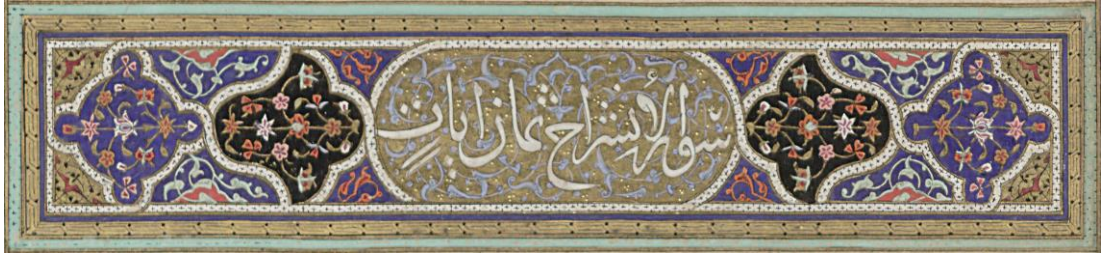 سورة الانشراح ثمان ايات